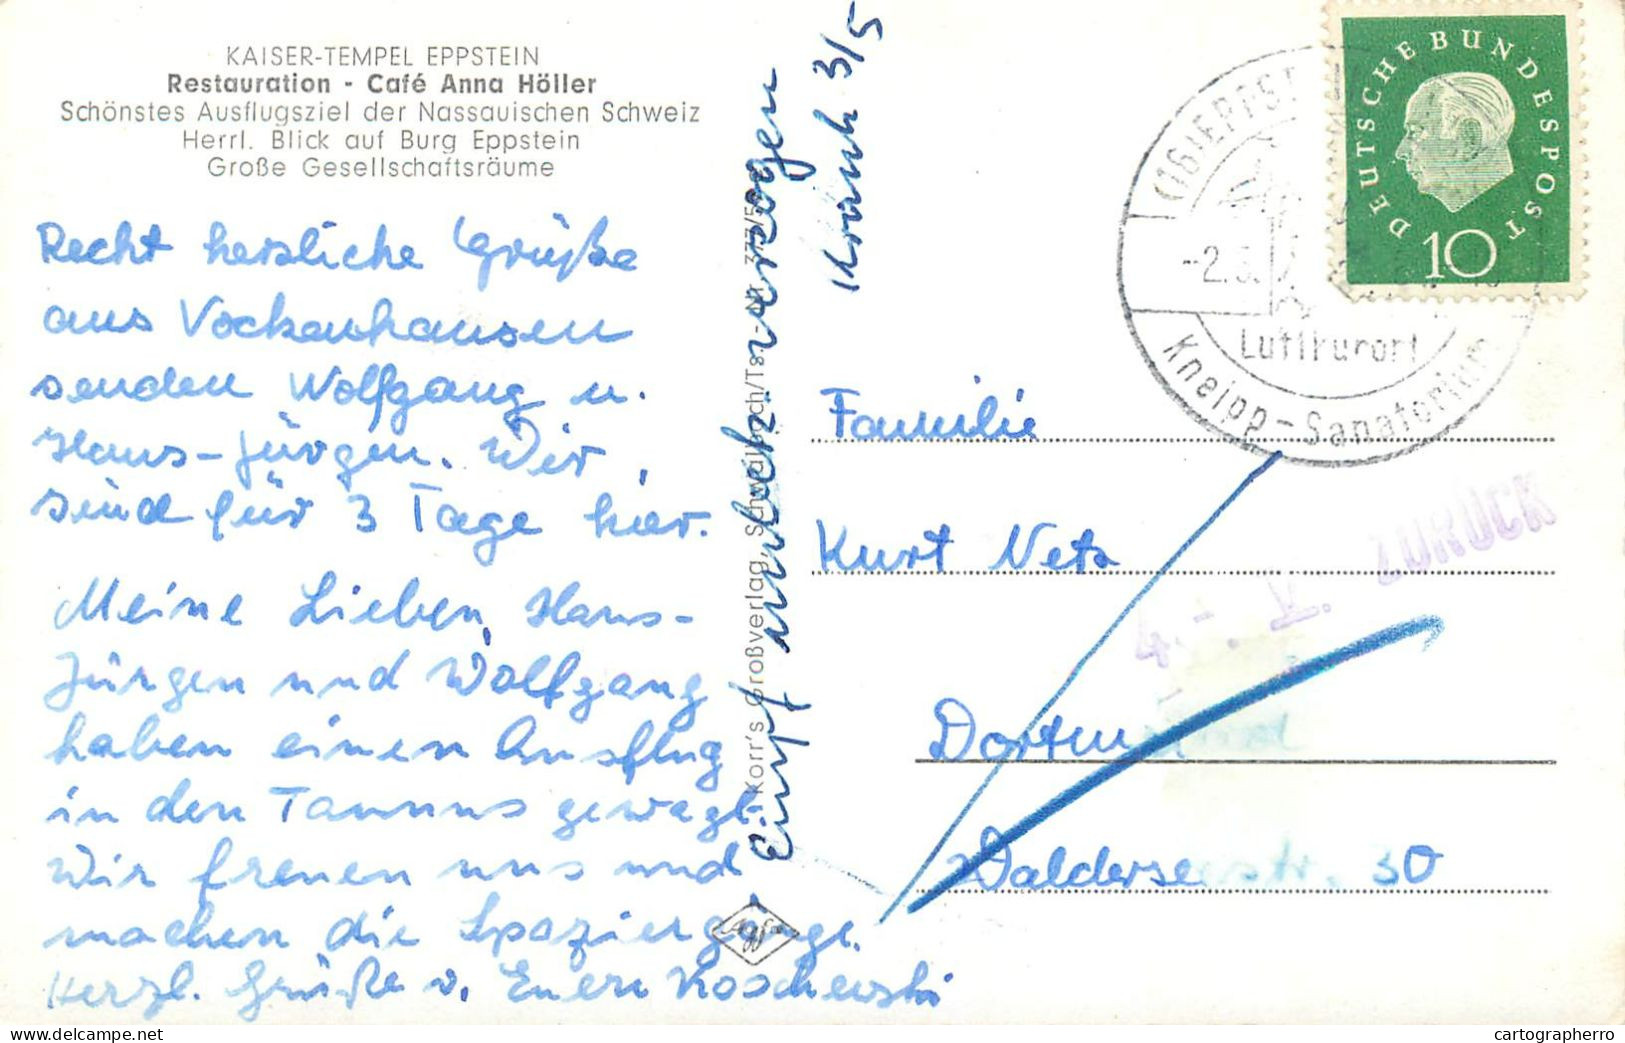 KAISER-TEMPEL EPPSTEIN
Restauration - Café Anna Höller
Schönstes Ausflugsziel der Nassauischen Schweiz
Herrl. Blick auf Burg Eppstein
Große Gesellschaftsräume
Recht herzliche Grüße
aus Vockenhausen
senden Wolfgang u.
Hans-Jürgen. Wir
sind für 3 Tage hier.
Meine Lieben, Hans-
Jürgen und Wolfgang
haben einen Ausflug
in den Taunus gewagt.
Wir freuen uns und
machen die Spaziergänge.
Herzl. Grüße v. Euern Koschewski
Korr's Großverlag, Schwalbach/Ts.
Agfa
Empf unbek. verzogen
3/5
DEUTSCHE BUNDESPOST
10
(16) EPPST
-2.5.
Luftkurort
Kneipp-Sanatorium
Familie
Kurt Netz
4.-. V. ZURÜCK
Dortmund
Walderseestr. 30
cartographerro